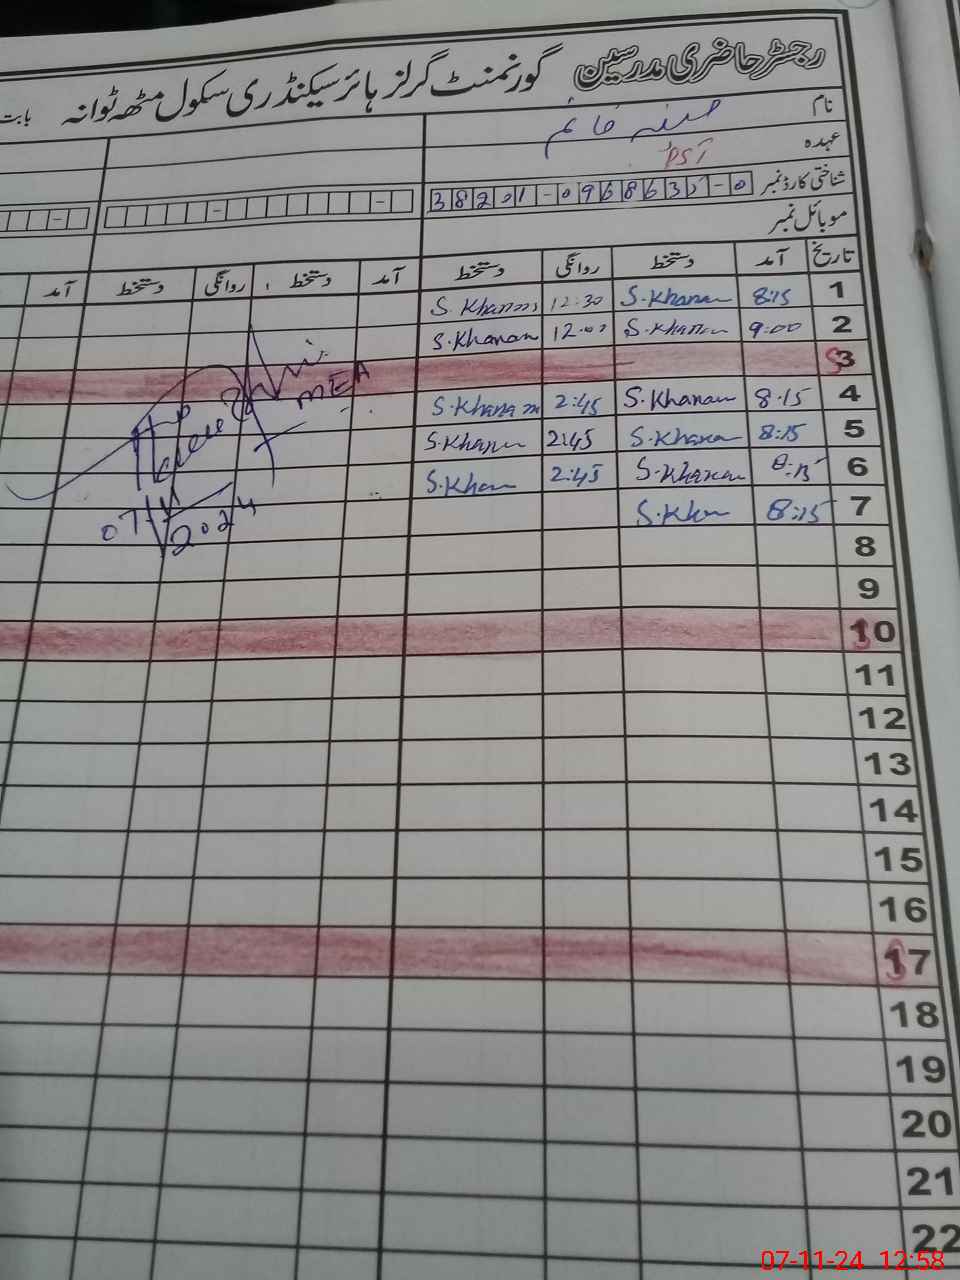 رجسٹر حاضری مدرسین گورنمنٹ گرلز ہائر سیکنڈری سکول مٹھہ ٹوانہ بابت
نام خانم
عہدہ PST
شناختی کارڈ نمبر 38201-0968635-0
موبائل نمبر
تاریخ آمد دستخط روانگی دستخط آمد دستخط روانگی دستخط آمد
1 8:15 S.Khanam 12:30 S.Khanam
2 9:00 S.Khanam 12:00 S.Khanam
3 S
4 8:15 S.Khanam 2:45 S.Khanam
5 8:15 S.Khanam 2:45 S.Khanam
6 8:15 S.Khanam 2:45 S.Khan
7 8:15 S.Khan
MEA
07/11/2024
8
9
10 S
11
12
13
14
15
16
17 S
18
19
20
21
22
07-11-24 12:58